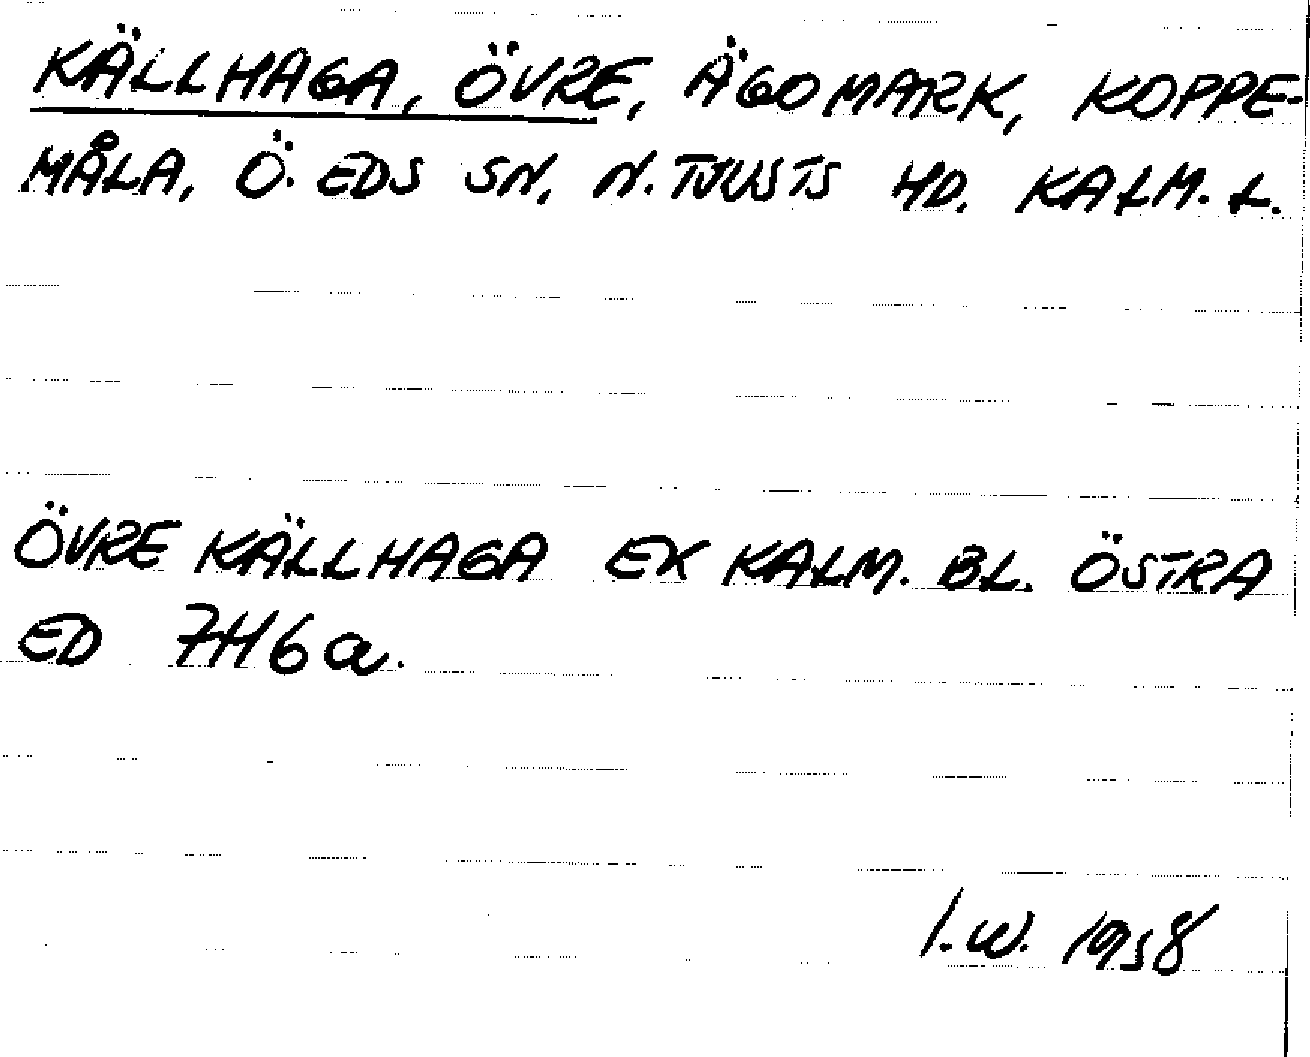 KÄLLHAGA, ÖVRE, ÄGOMARK, KOPPE-
MÅLA, Ö. EDS SN, N. TJUSTS HD. KALM. L.
ÖVRE KÄLLHAGA EK KALM. BL. ÖSTRA
ED 7H6a.
I.W. 1958